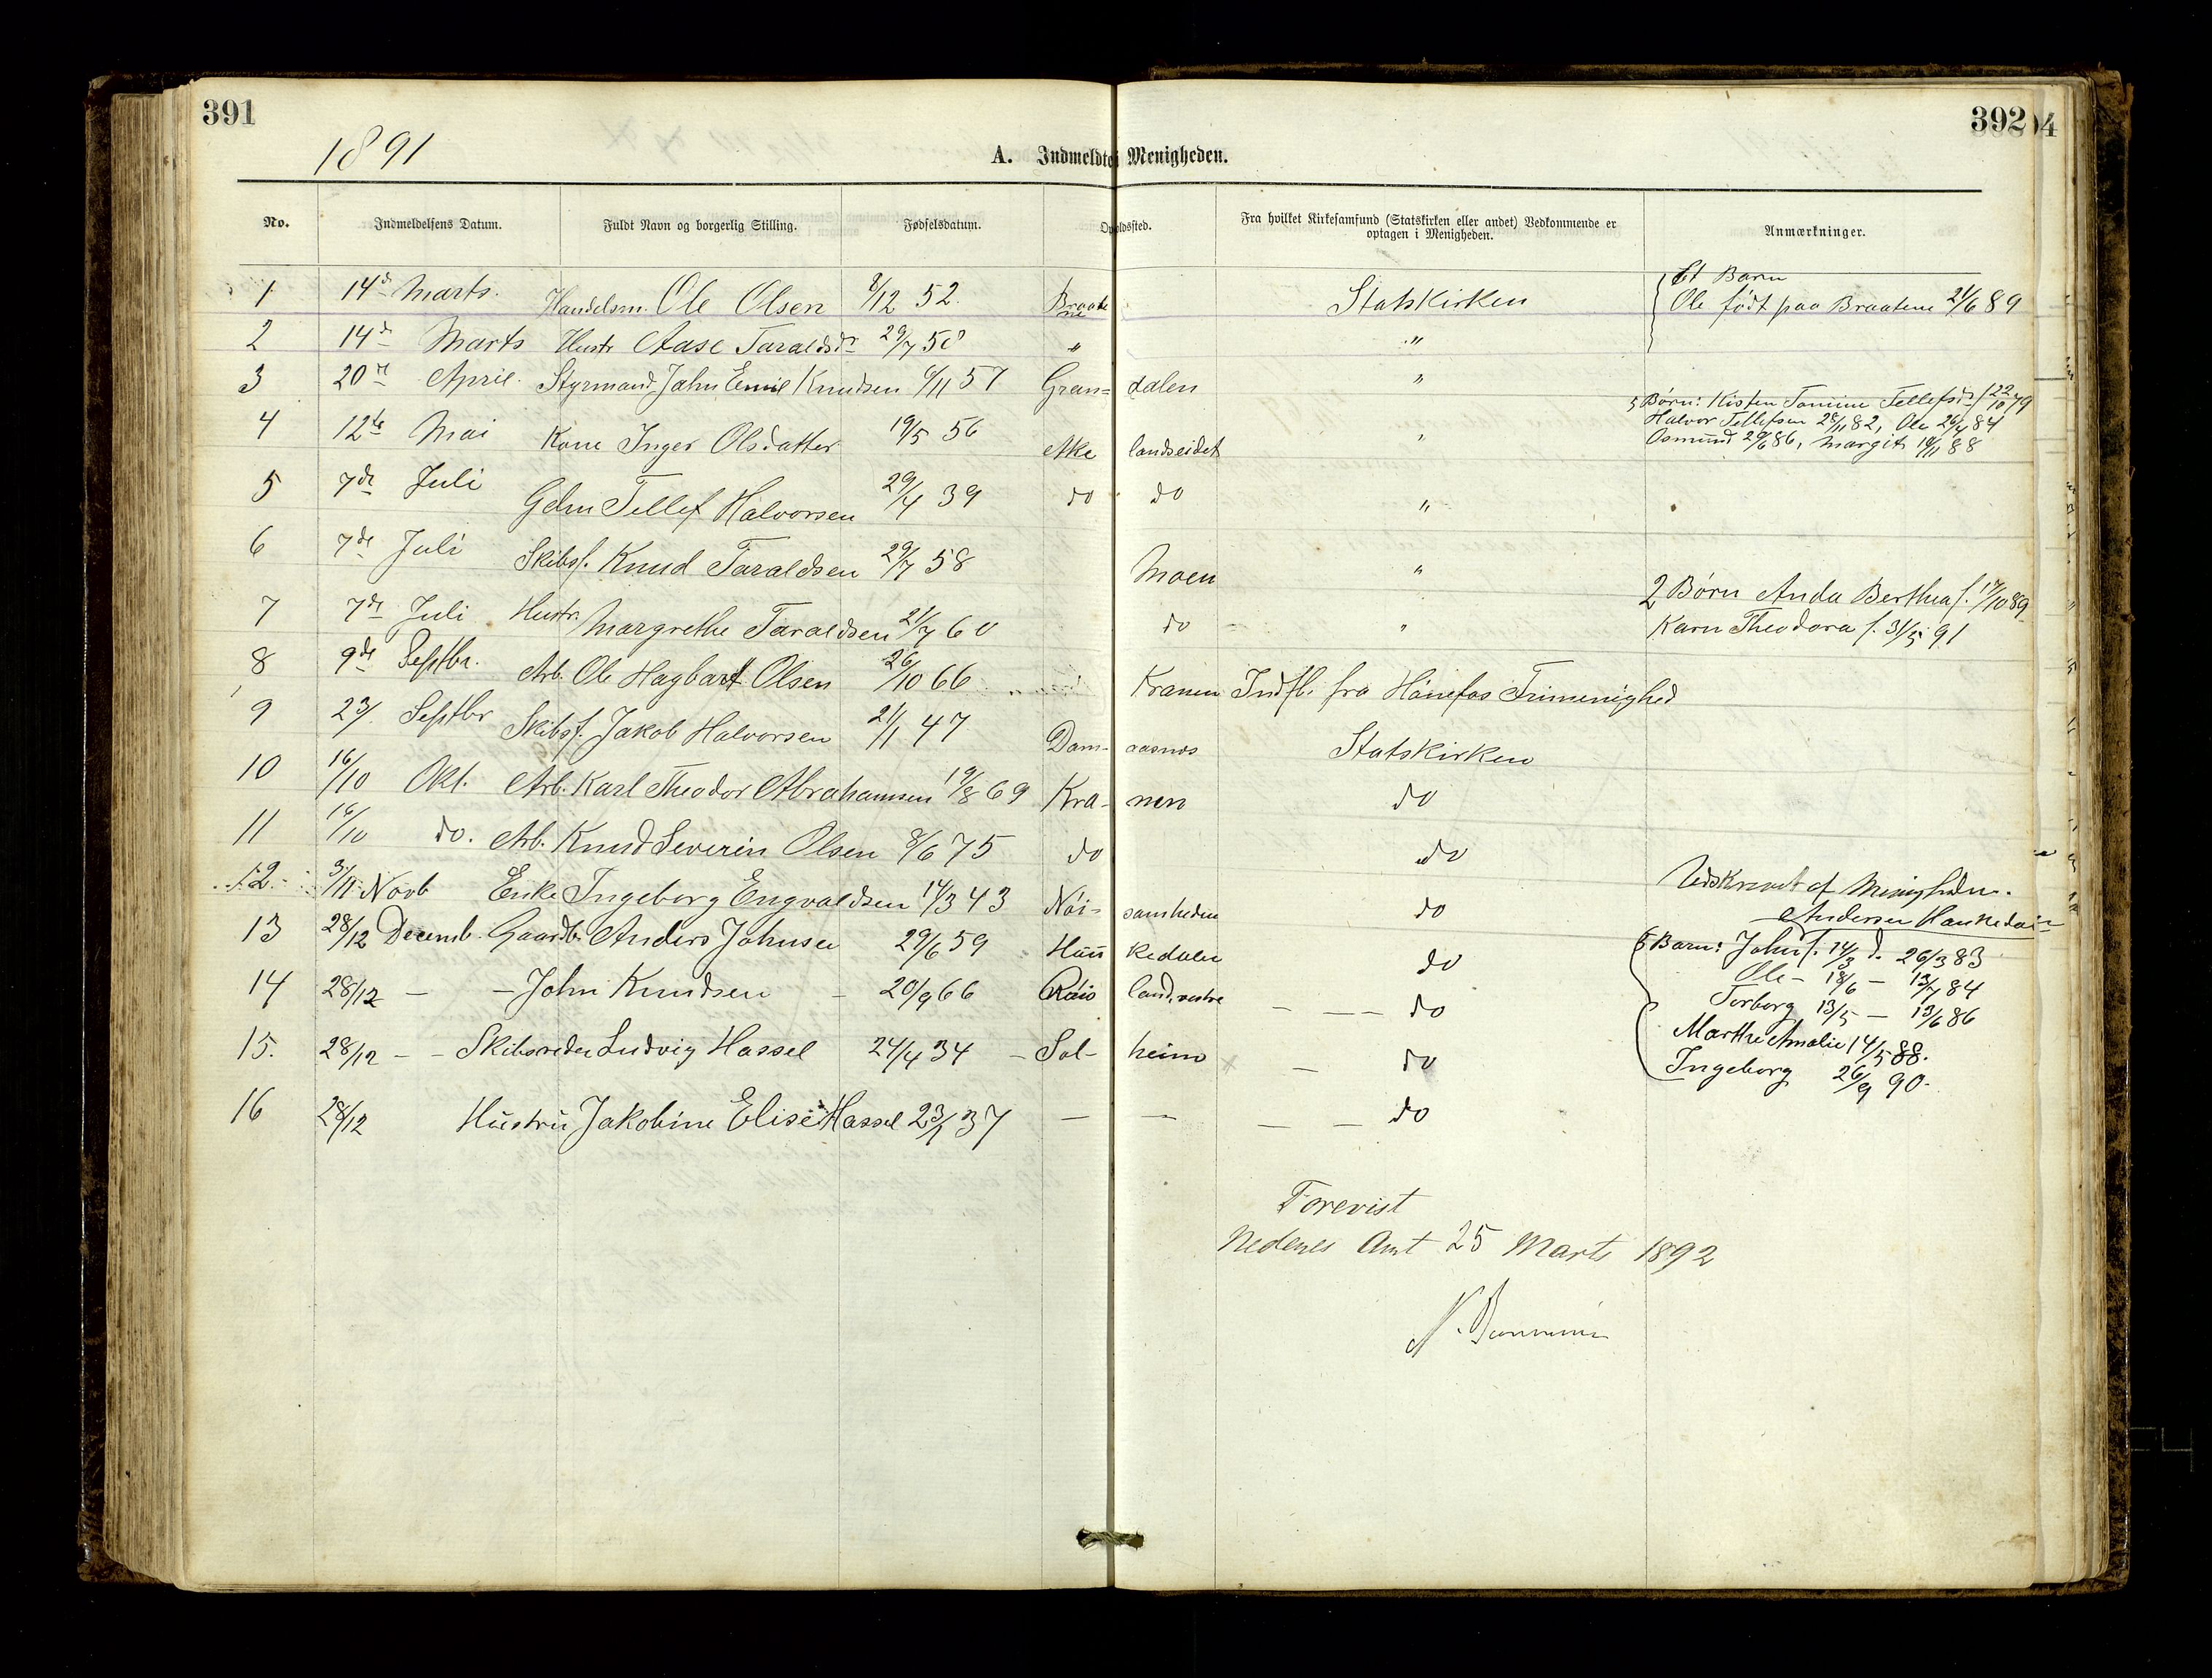 391
392
1891
A. Indmeldte i Menigheden.
No. Indmeldelsens Datum. Fuldt Navn og borgerlig Stilling. Fødselsdatum. Opholdssted. Fra hvilket Kirkesamfund (Statskirken eller andet) Vedkommende er optagen i Menigheden. Anmærkninger.
Et Barn
1 14d Marts. Handelsm. Ole Olsen 8/12 52. Braatene Statskirken Ole født paa Braatene 21/6 89
2 14d Marts Hustr Aase Taraldsdr 29/7 50 " "
3 20de April. Styrmand John Emil Knudsen 6/11 57 Gran= dalen "
5 Børn: Kisten Tomine Tellefsd 22/10 79
Halvor Tellefsen 28/11 82, Ole 26/4 84
4 12te Mai Kone Inger Olsdatter 19/5 56 Ake landseidet " Osmund 29/6 86, Margit 19/11 88
5 7de Juli Gdm Tellef Halvorsen 29/4 39 do do "
6 7de Juli Skibsf. Knud Taraldsen 29/7 58 Moen "
2 Børn Anda Berthea f. 17/10 89
7 7de Juli Hustr. Margrethe Taraldsen 21/7 60 do " Karn Theodora f. 31/5 91
8 9de Septbr. Arb. Ole Hagbart Olsen 26/10 66 Kranen Indfl. fra Hönefos Frimenighed
9 23/ Septbr Skibsf. Jakob Halvorsen 21/1 47 Dam- aasnes Statskirken
10 16/10 Okt. Arb. Karl Theodor Abrahamsen 19/8 69 Kra- nen do
11 16/10 do. Arb. Knud Severin Olsen 8/6 75 do do
12 3/11 Novb Enke Ingeborg Engvaldsen 14/3 43 Nöi- somheden do Udskrevet af Menigheden.
Andersen Hankedal
13 28/12 Decemb. Gaardb. Anders Johnsen 29/6 59 Han kedalen do 5 Barn: John f. 14/3 d. 26/3 83
Ole - 18/6 - 13/7 84
14 28/12 - - John Knudsen - 20/9 66 land, vestre - - - do Torborg 13/5 - 13/6 86
Marthe Amalie 14/5 88.
15. 28/12 - - Skibsreder Ludvig Hassel 24/4 34 - Sol- heim - do Ingeborg 26/9 90.
16 28/12 Hustru Jakobine Elise Hassel 23/1 37 - - - - do
Forevist
Nedenes Amt 25 Marts 1892